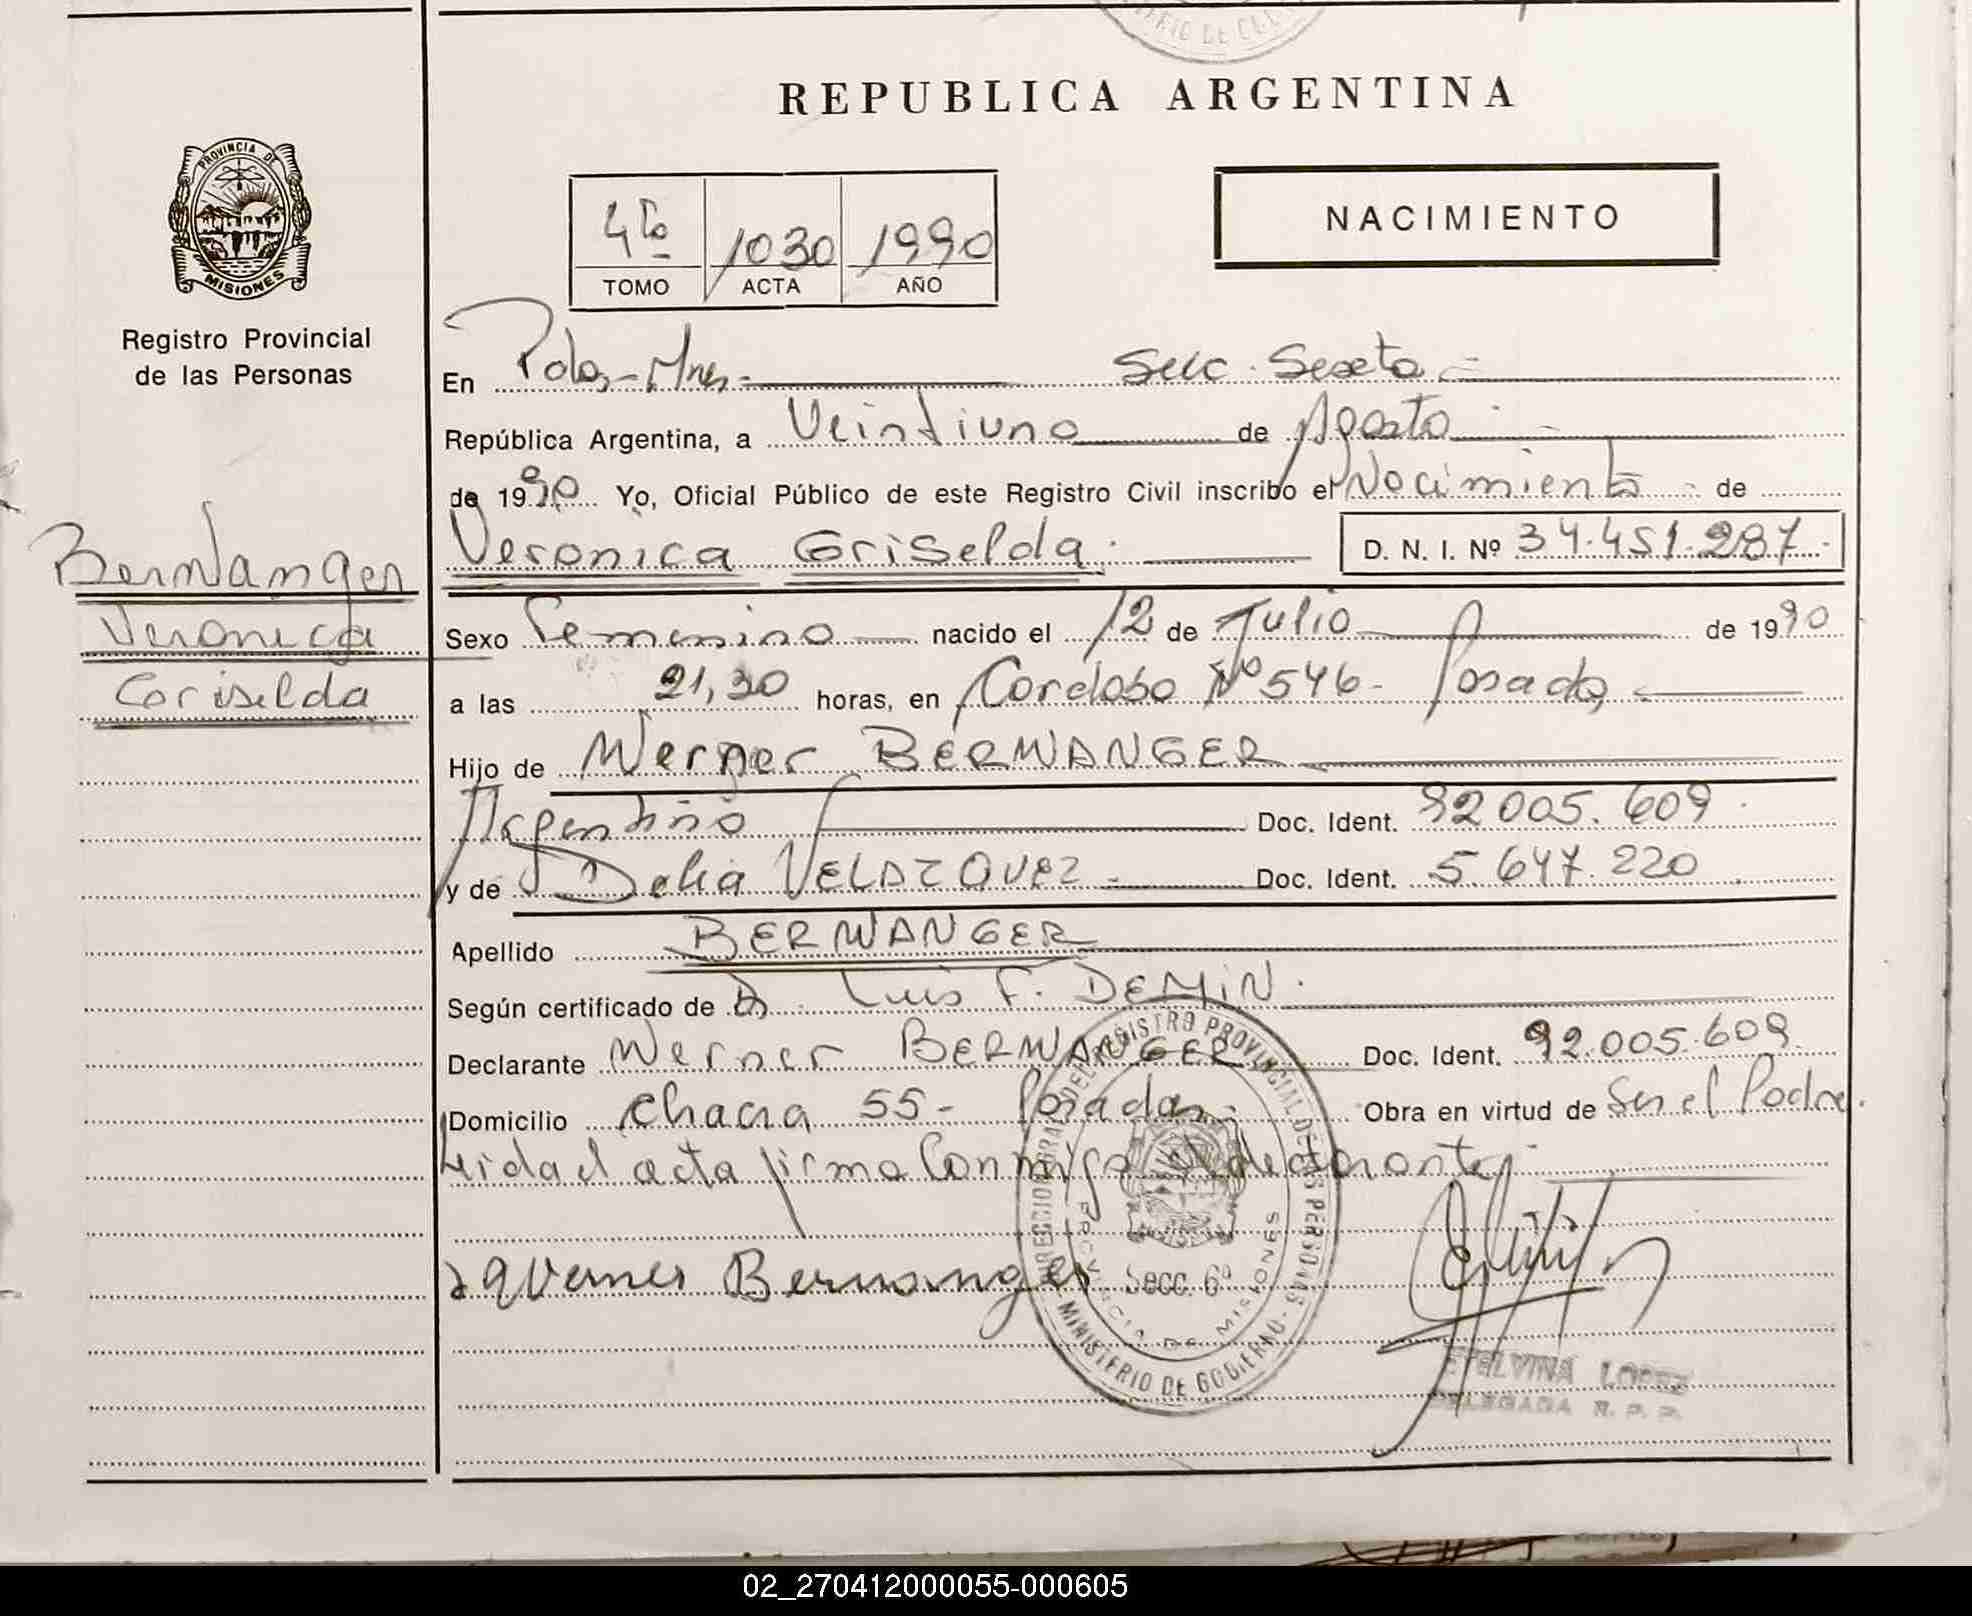 REPUBLICA ARGENTINA
PROVINCIA DE
MISIONES
Registro Provincial
de las Personas
4to
1030
1990
TOMO
ACTA
AÑO
NACIMIENTO
En Pdas - Mnes - Secc. Sexta
República Argentina, a Veintiuno de Agosto
de 1990 Yo, Oficial Público de este Registro Civil inscribo el Nacimiento de
Veronica Griselda D. N. I. Nº 34.451.287
Berwanger
Veronica
Griselda
Sexo Femenino nacido el 12 de Julio de 1990
a las 21,30 horas, en Cordoba Nº 546 - Posadas
Hijo de Werner BERWANGER
Argentino Doc. Ident. 92.005.609
y de Delia VELAZQUEZ Doc. Ident. 5.647.220
Apellido BERWANGER
Según certificado de Dr. Luis F. DEMIN
Declarante Werner BERWANGER Doc. Ident. 92.005.609
Domicilio Chacra 55 - Posadas Obra en virtud de Ser el Padre.
Leida el acta firma Conmigo el declarante
Werner Berwanger
DIRECCION GRAL. DEL REGISTRO PROVINCIAL DE LAS PERSONAS
MINISTERIO DE GOBIERNO
PROVINCIA DE MISIONES
Secc. 6ª
ETELVINA LOPEZ
DELEGADA R. P. P.
02_270412000055-000605